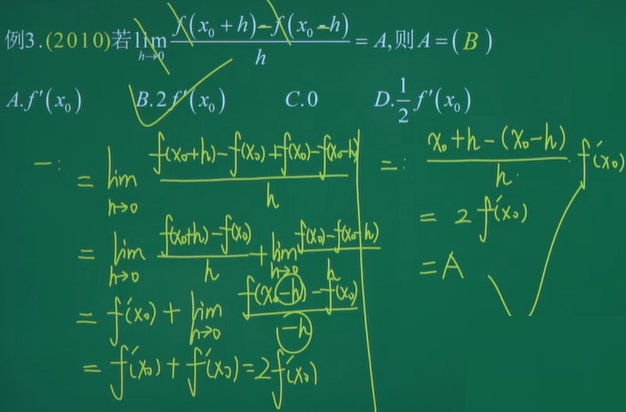 例3.(2010)若lim h→0 f(x₀+h)-f(x₀-h)/h = A,则A=(B)
A.f'(x₀) B.2f'(x₀) C.0 D.1/2 f'(x₀)
一: = lim h→0 f(x₀+h)-f(x₀)+f(x₀)-f(x₀-h)/h
= lim h→0 f(x₀+h)-f(x₀)/h + lim h→0 f(x₀)-f(x₀-h)/h
= f'(x₀) + lim h→0 f(x₀-h)-f(x₀)/-h
= f'(x₀)+f'(x₀)=2f'(x₀)
二: x₀+h-(x₀-h)/h · f'(x₀)
= 2f'(x₀)
= A